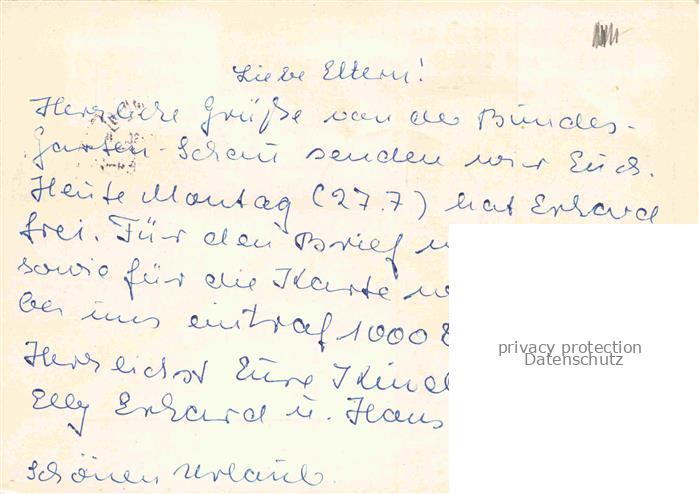 Liebe Eltern!
Herzliche Grüße von der Bundes-
Garten-Schau senden wir Euch.
Heute Montag (27.7) hat Erhard
frei. Für den Brief
sowie für die Karte
bei uns eintraf 1000
Herzlichst Eure
Elly Erhard u. Hans
schönen Urlaub.
privacy protection
Datenschutz